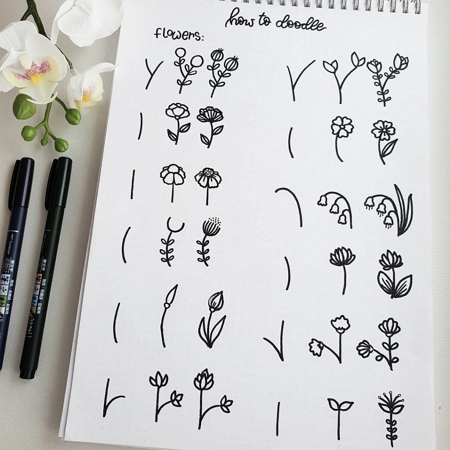 how to doodle
flowers: